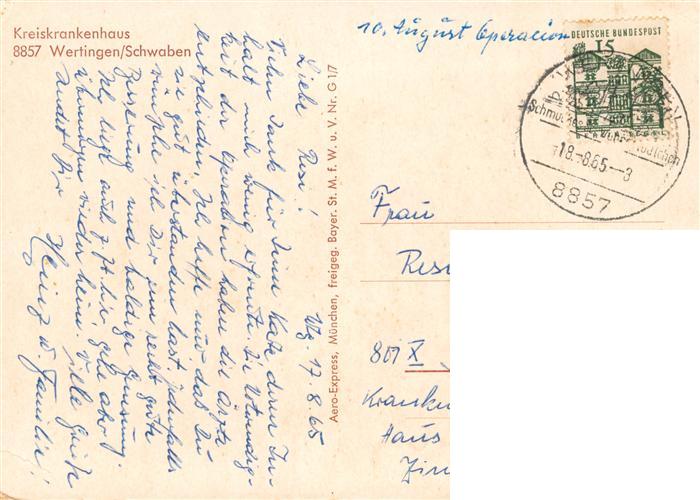 Kreiskrankenhaus
8857 Wertingen/Schwaben
10. August Operacion
DEUTSCHE BUNDESPOST
15
18.-8.65.-8
8857
Wtg. 17.8.65
Liebe Resi!
Vielen Dank für Deine Karte deren In-
halt mich wenig erfreute. Die Notwendig-
keit der Operation haben die Ärzte
entschieden. Ich hoffe nur das Du
sie gut überstanden hast jedenfalls
wünsche ich Dir zum recht gute
Besserung und baldige Genesung
Ich liege auch z. Zt. hier gehe aber
übermorgen wieder heim. Viele Grüße
sendet Dir
Heinz u. Familie!
Aero-Express, München, freigeg. Bayer. St. M. f. W. u. V. Nr. G 1/7
Frau
Resi
801 X
Kranken
Haus
Zim